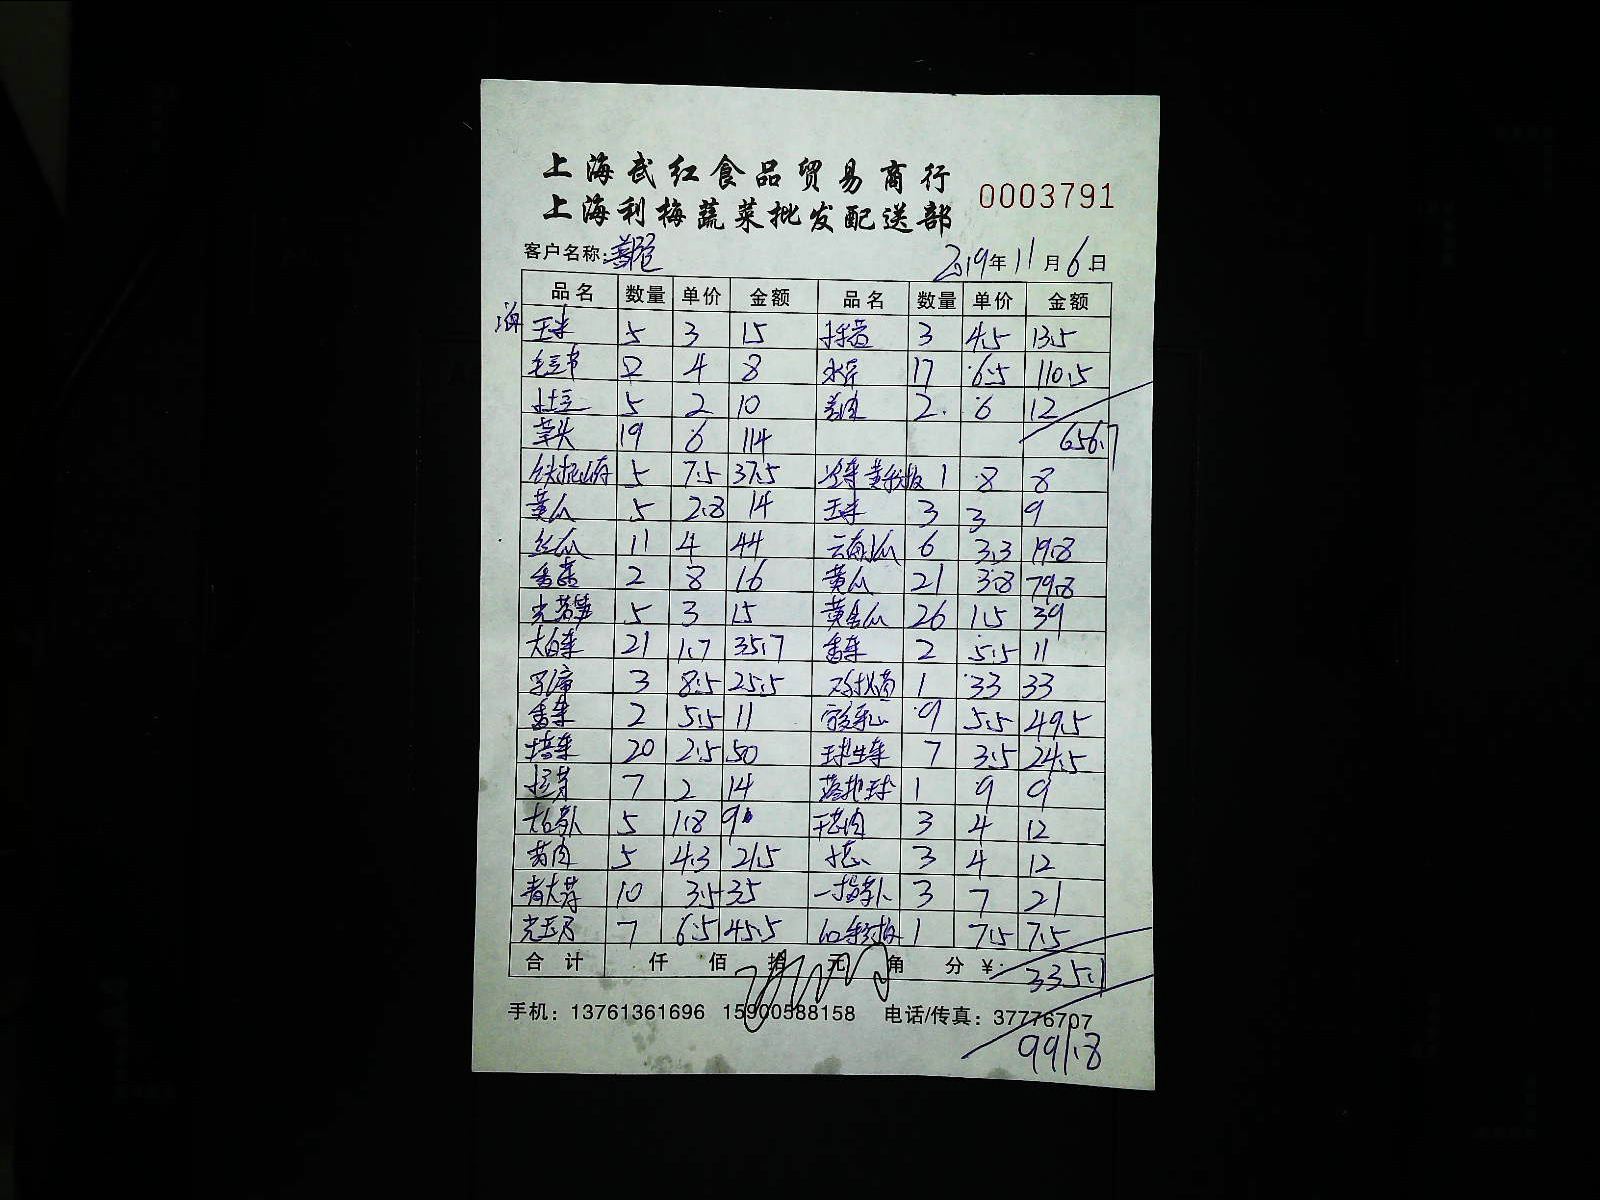 上海武红食品贸易商行
上海利梅蔬菜批发配送部
0003791
客户名称: 2019年11月6日
品名 数量 单价 金额 品名 数量 单价 金额
玉米 5 3 15 3 4.5 13.5
毛豆节 2 4 8 水芹 17 6.5 110.5
土豆 5 2 10 2 6 12
草头 19 6 114 656.7
铁棍山药 5 7.5 37.5 1 8 8
黄瓜 5 2.8 14 玉米 3 3 9
丝瓜 11 4 44 云南小瓜 6 3.3 19.8
香菇 2 8 16 黄瓜 21 3.8 79.8
光莴笋 5 3 15 黄金瓜 26 1.5 39
大白菜 21 1.7 35.7 香菜 2 5.5 11
3 8.5 25.5 1 33 33
香菜 2 5.5 11 9 5.5 49.5
20 2.5 50 球生菜 7 3.5 24.5
7 2 14 1 9 9
大白萝卜 5 1.8 9 3 4 12
5 4.3 21.5 小葱 3 4 12
10 3.5 35 3 7 21
7 6.5 45.5 1 7.5 7.5
合计 仟 佰 拾 元 角 分 ¥: 335.1
手机：13761361696 15900588158 电话/传真：37776707
991.8